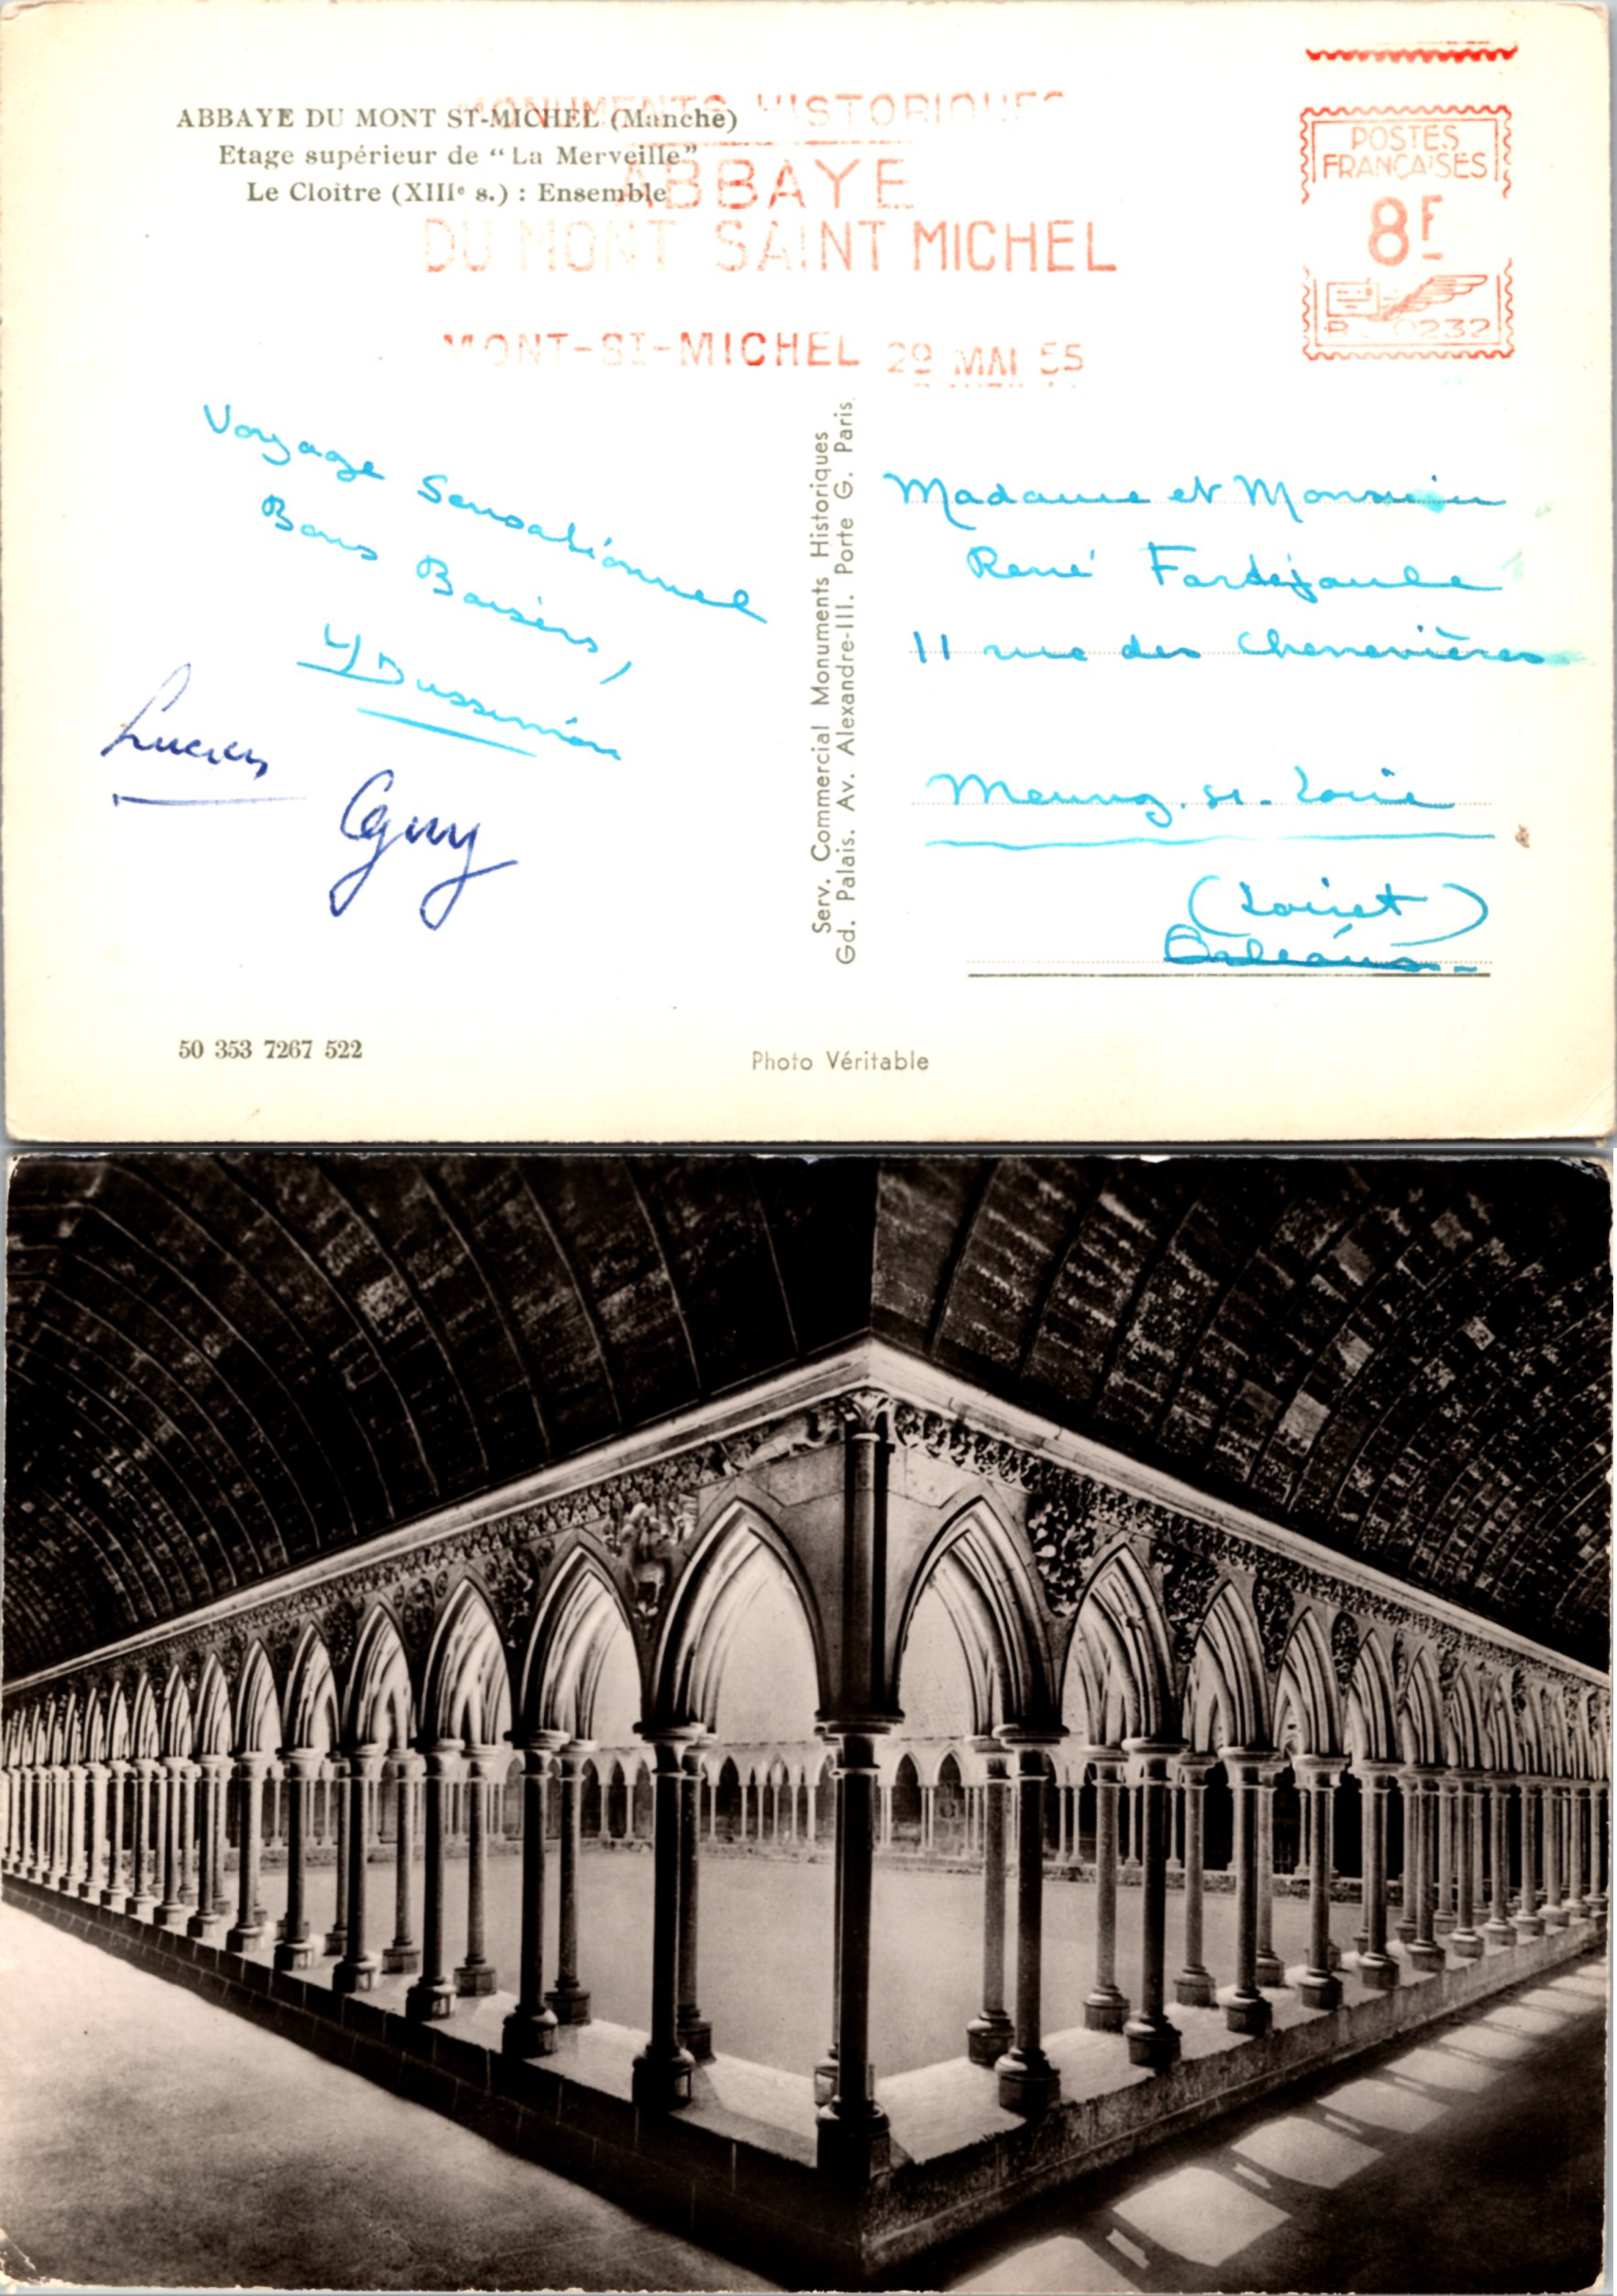 MONUMENTS HISTORIQUES
ABBAYE DU MONT ST-MICHEL (Manche)
Etage supérieur de “La Merveille”
Le Cloitre (XIIIᵉ s.) : Ensemble
ABBAYE
DU MONT SAINT MICHEL
MONT-ST-MICHEL 29 MAI 55
POSTES
FRANÇAISES
8F
0232
Voyage Sensationnel
Bons Baisers,
Lucien
Serv. Commercial Monuments Historiques
Gd. Palais. Av. Alexandre-III. Porte G. Paris
Madame et Monsieur
René
11 rue des Chenevières
Meung-sr-Loire
(Loiret)
Orléans
50 353 7267 522
Photo Véritable